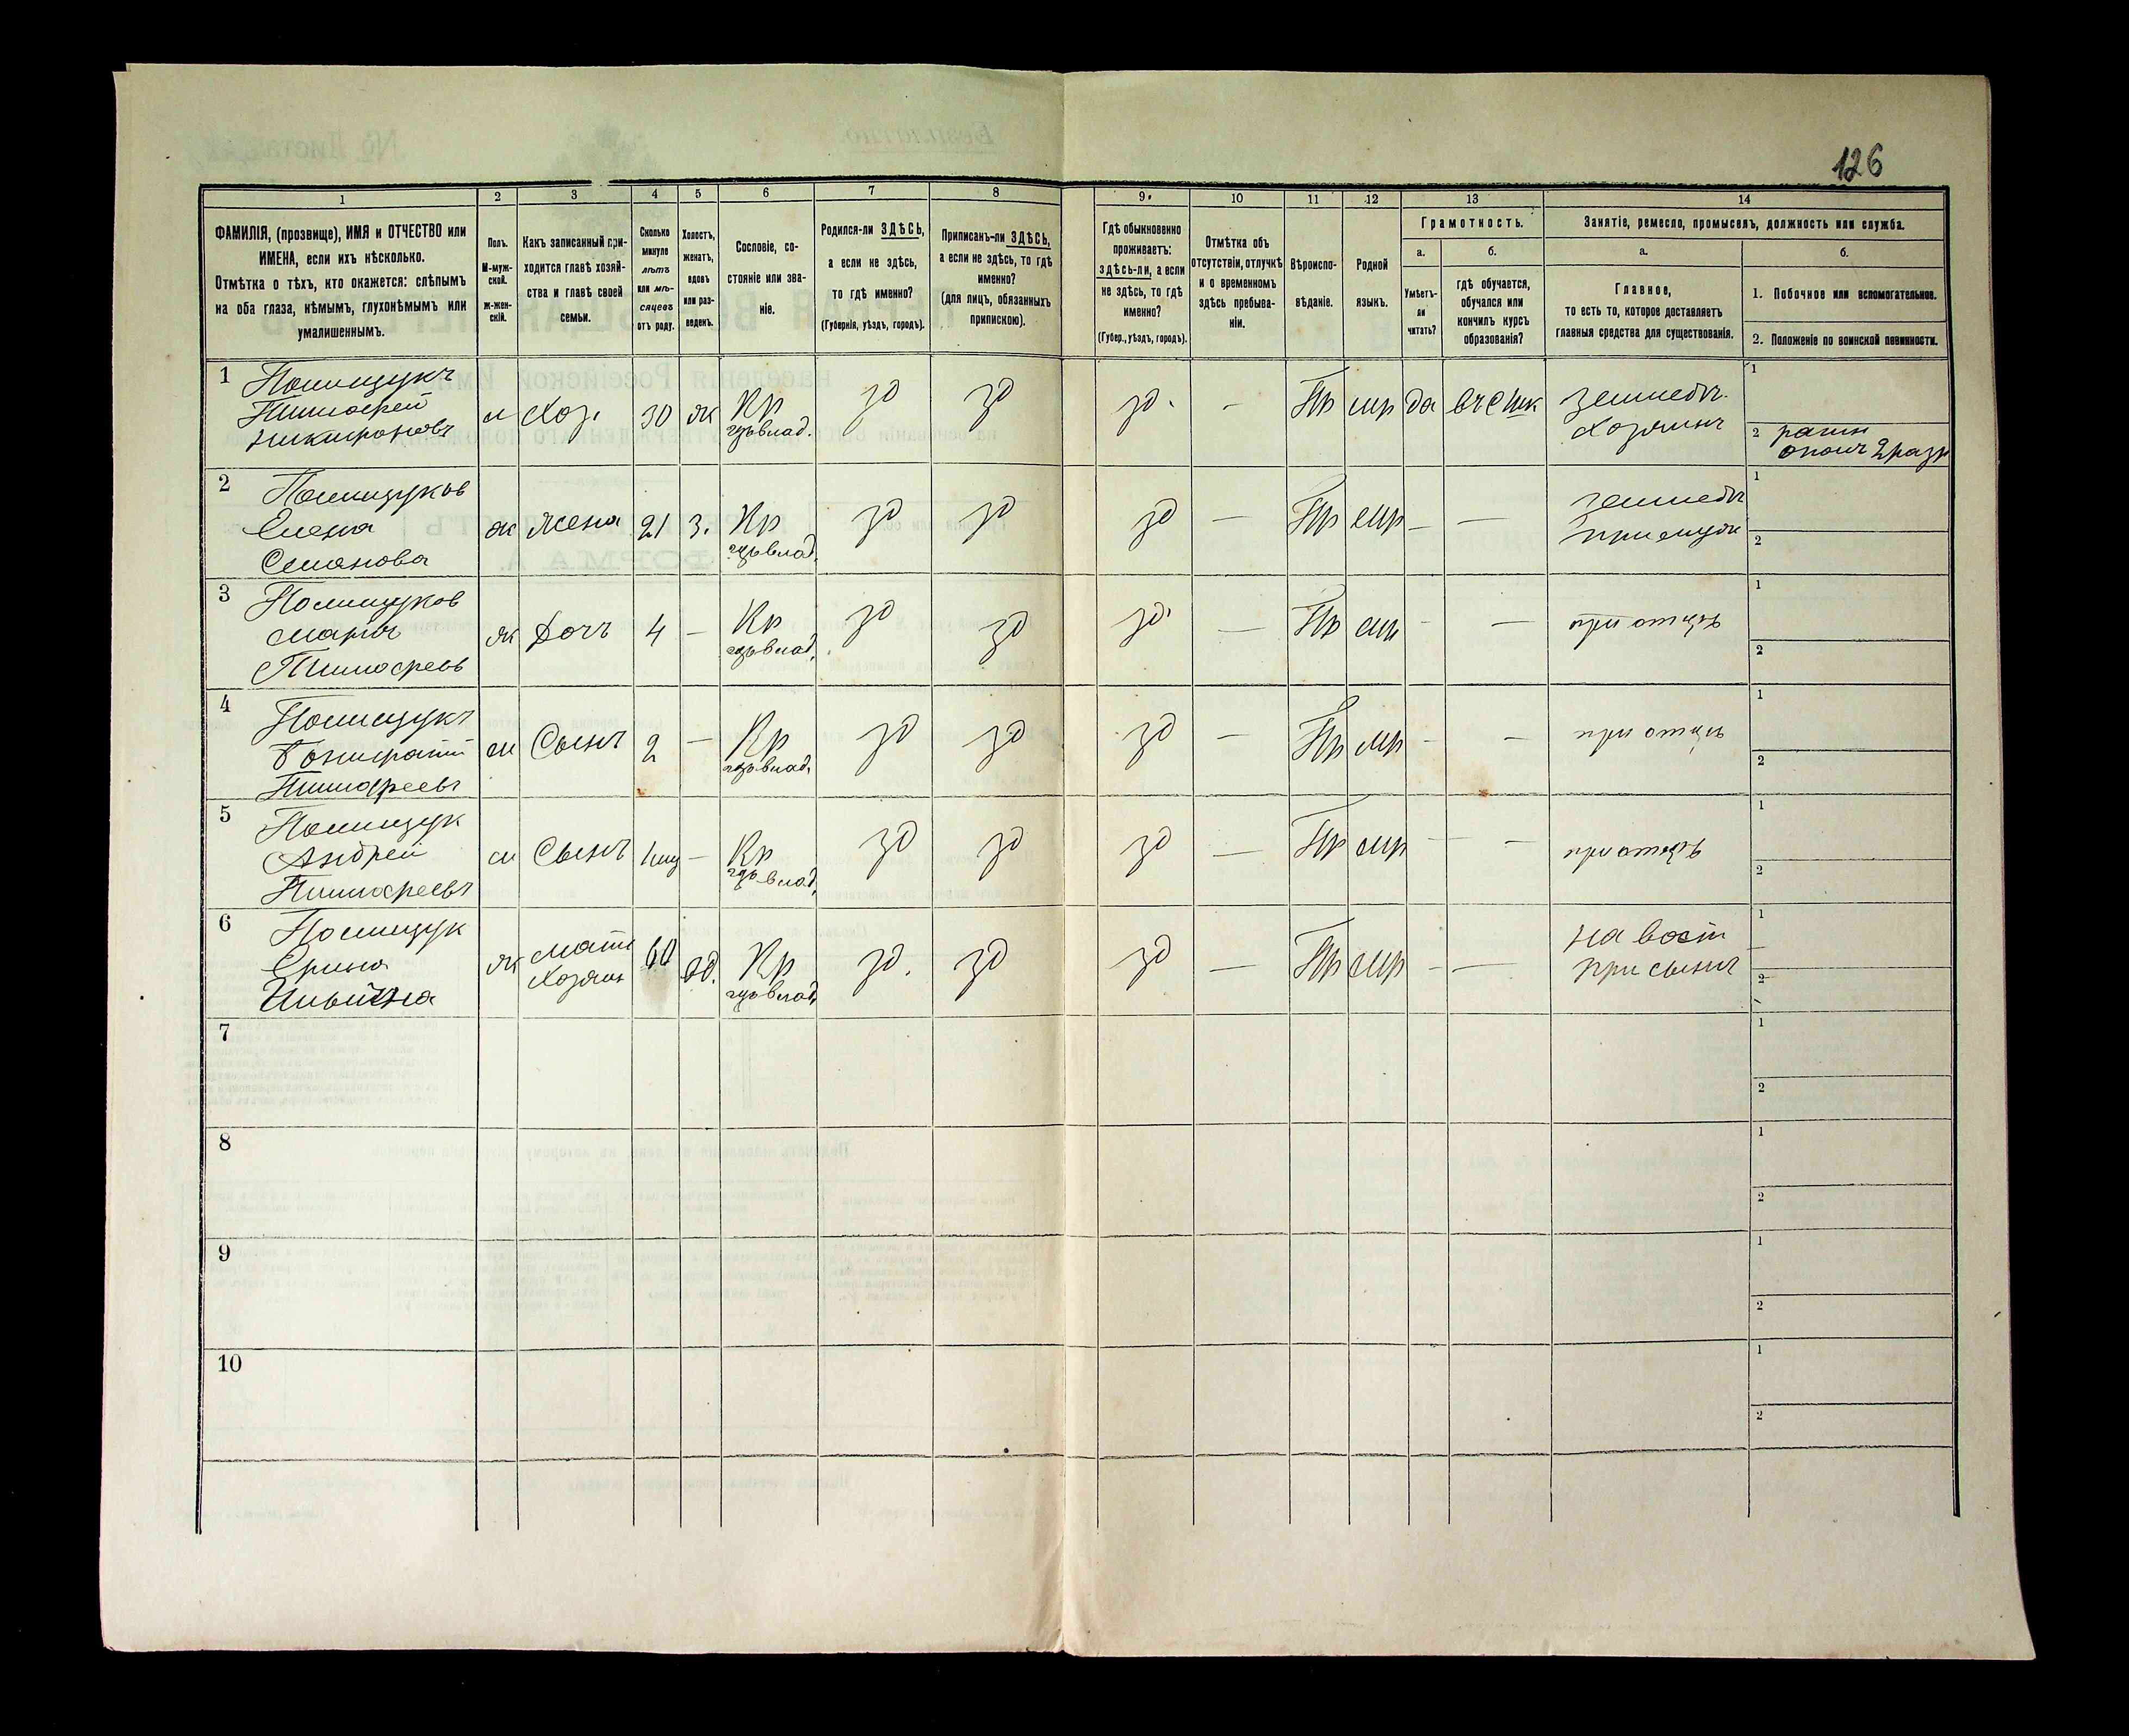 126
1 2 3 4 5 6 7 8 9. 10 11 12 13 14
ФАМИЛІЯ, (прозвище), ИМЯ и ОТЧЕСТВО или
ИМЕНА, если ихъ нѣсколько.
Отмѣтка о тѣхъ, кто окажется: слѣпымъ
на оба глаза, нѣмымъ, глухонѣмымъ или
умалишеннымъ.
Полъ.
М-муж-
ской.
ж-жен-
скій.
Какъ записанный при-
ходится главѣ хозяй-
ства и главѣ своей
семьи.
Сколько
минуло
лѣтъ
или мѣ-
сяцевъ
отъ роду.
Холостъ,
женатъ,
вдовъ
или раз-
веденъ.
Сословіе, со-
стояніе или зва-
ніе.
Родился-ли ЗДѢСЬ,
а если не здѣсь,
то гдѣ именно?
(Губернія, уѣздъ, городъ).
Приписанъ-ли ЗДѢСЬ,
а если не здѣсь, то гдѣ
именно?
(для лицъ, обязанныхъ
припискою).
Гдѣ обыкновенно
проживаетъ:
здѣсь-ли, а если
не здѣсь, то гдѣ
именно?
(Губер., уѣздъ, городъ).
Отмѣтка объ
отсутствіи, отлучкѣ
и о временномъ
здѣсь пребыва-
ніи.
Вѣроиспо-
вѣданіе.
Родной
языкъ.
Грамотность.
а.
Умѣетъ-
ли
читать?
б.
гдѣ обучается,
обучался или
кончилъ курсъ
образованія?
Занятіе, ремесло, промыселъ, должность или служба.
а.
Главное,
то есть то, которое доставляетъ
главныя средства для существованія.
б.
1. Побочное или вспомогательное.
2. Положеніе по воинской повинности.
1 Полищукъ
Тимофей
Никифоровъ
м Хоз. 30 ж Кр
влад.
зд зд зд. - Пр мр да
земледѣ.
Хозяинъ
1
2 ратн
ополч 2 разр
2 Полищуков
Елена
Семенова
ж жена 21 з. Кр
влад.
зд зд зд — Пр мр - —
земледѣ
при мужѣ
1
2
3 Полищуков
Марія
Тимофеев
ж Дочь 4 — Кр
влад.
зд зд зд — Пр мр - —
при отцѣ
1
2
4 Полищукъ
Тимофеевъ
м Сынъ 2 — Кр
влад.
зд зд зд — Пр мр - —
при отцѣ
1
2
5 Полищук
Андрей
Тимофеевъ
м Сынъ — Кр
влад.
зд зд зд — Пр мр - —
при отцѣ
1
2
6 Полищук
Ерина
Ильична
ж мать
Хозяин
60 вд. Кр
влад.
зд. зд зд — Пр мр - —
при сынѣ
1
2
7 1
2
8 1
2
9 1
2
10 1
2